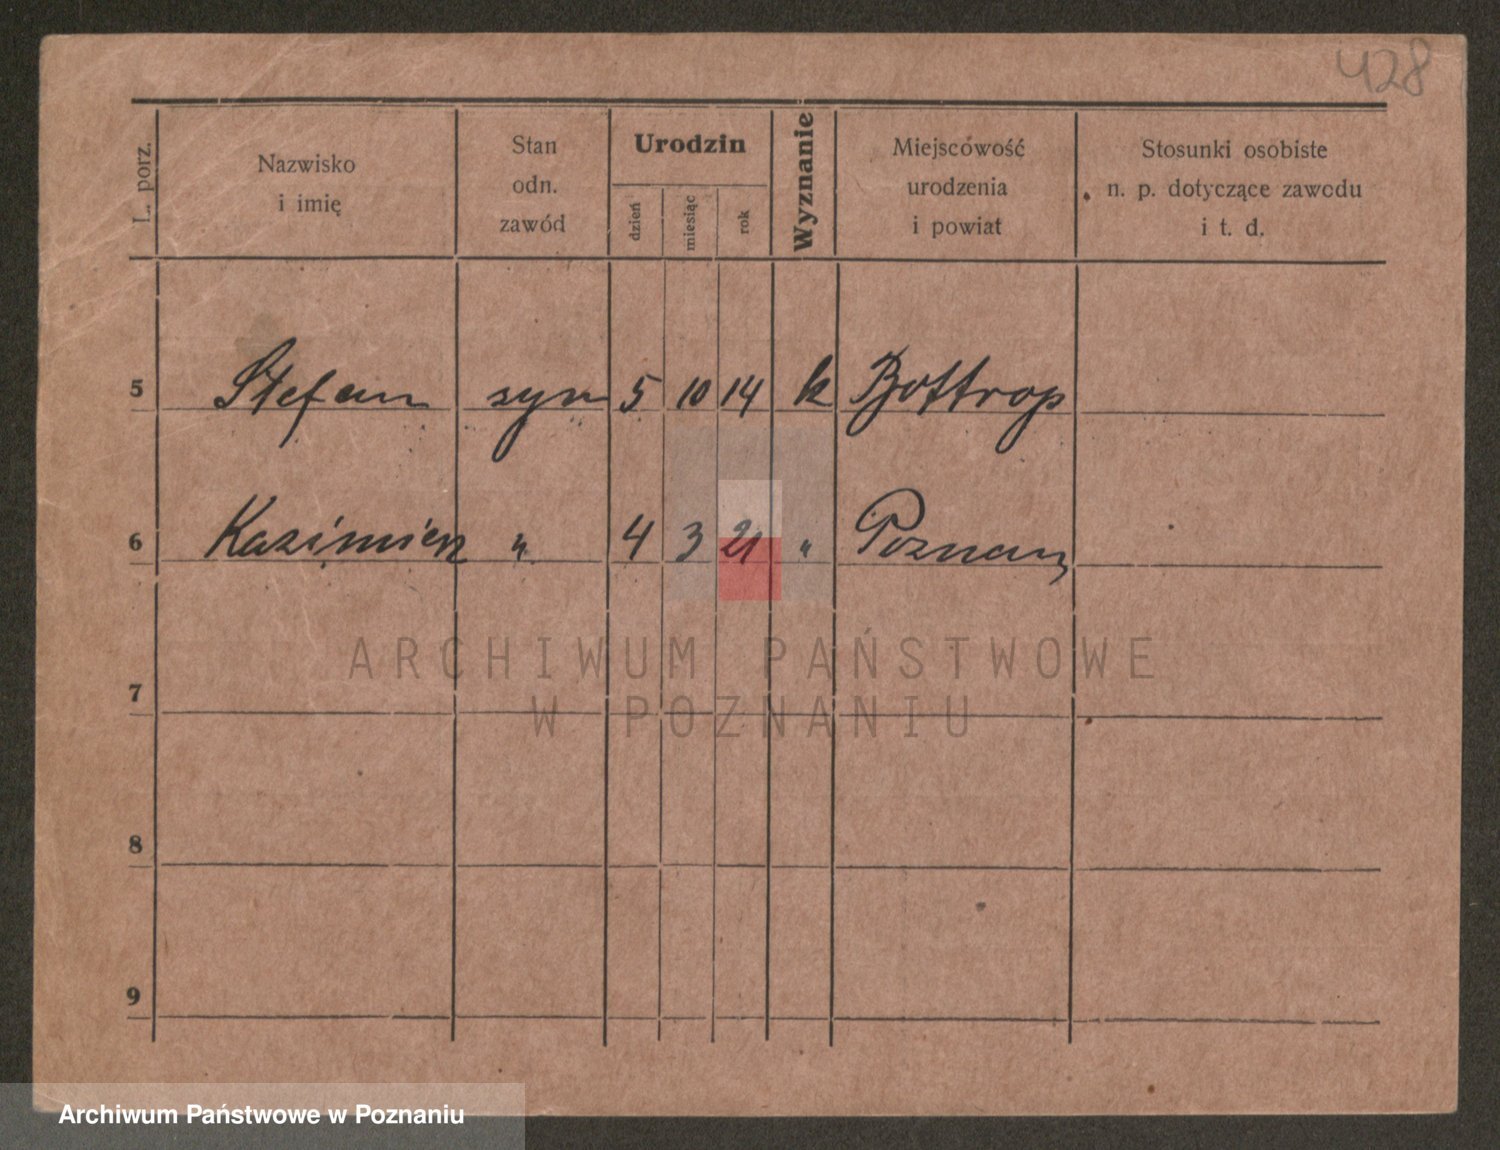 428
L. porz.
Nazwisko
i imię
Stan
odn.
zawód
Urodzin
dzień
miesiąc
rok
Wyznanie
Miejscowość
urodzenia
i powiat
Stosunki osobiste
n. p. dotyczące zawodu
i t. d.
5 Stefan syn 5 10 14 k Bottrop
6 Kazimierz " 4 3 21 " Poznań
ARCHIWUM PAŃSTWOWE
7
W POZNANIU
8
9
Archiwum Państwowe w Poznaniu